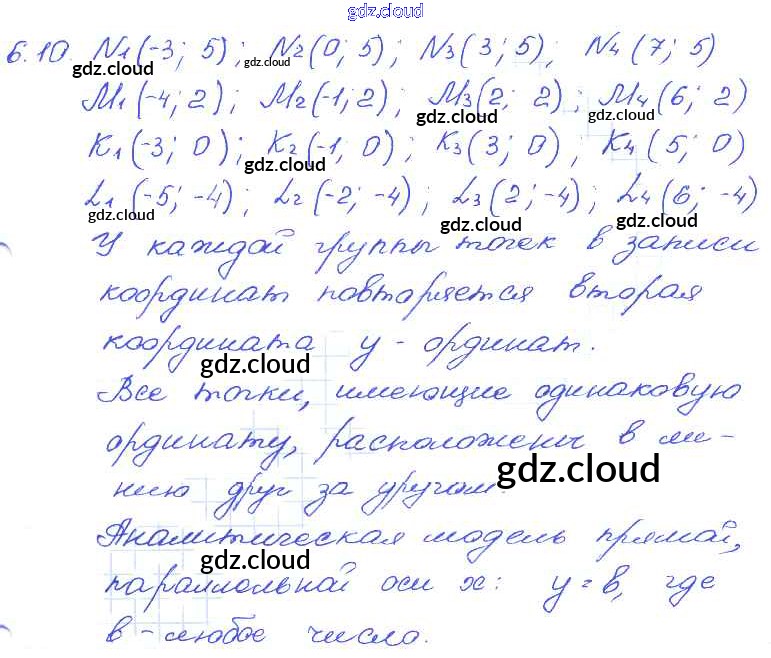 gdz.cloud
6.10. N1(-3; 5); N2(0; 5); N3(3; 5); N4(7; 5)
gdz.cloud gdz.cloud gdz.cloud
M1(-4; 2); M2(-1; 2); M3(2; 2); M4(6; 2)
gdz.cloud gdz.cloud
K1(-3; 0); K2(-1, 0); K3(3; 0); K4(5; 0)
gdz.cloud gdz.cloud
L1(-5; -4); L2(-2; -4); L3(2; -4); L4(6; -4)
gdz.cloud gdz.cloud gdz.cloud
У каждой группы точек в записи
координат повторяется вторая
координата y - ординат.
gdz.cloud
Все точки, имеющие одинаковую
ординату, расположены в ли-
нию друг за другом.
gdz.cloud
Аналитическая модель прямой,
gdz.cloud
параллольной оси x: y = в, где
в - любое число.